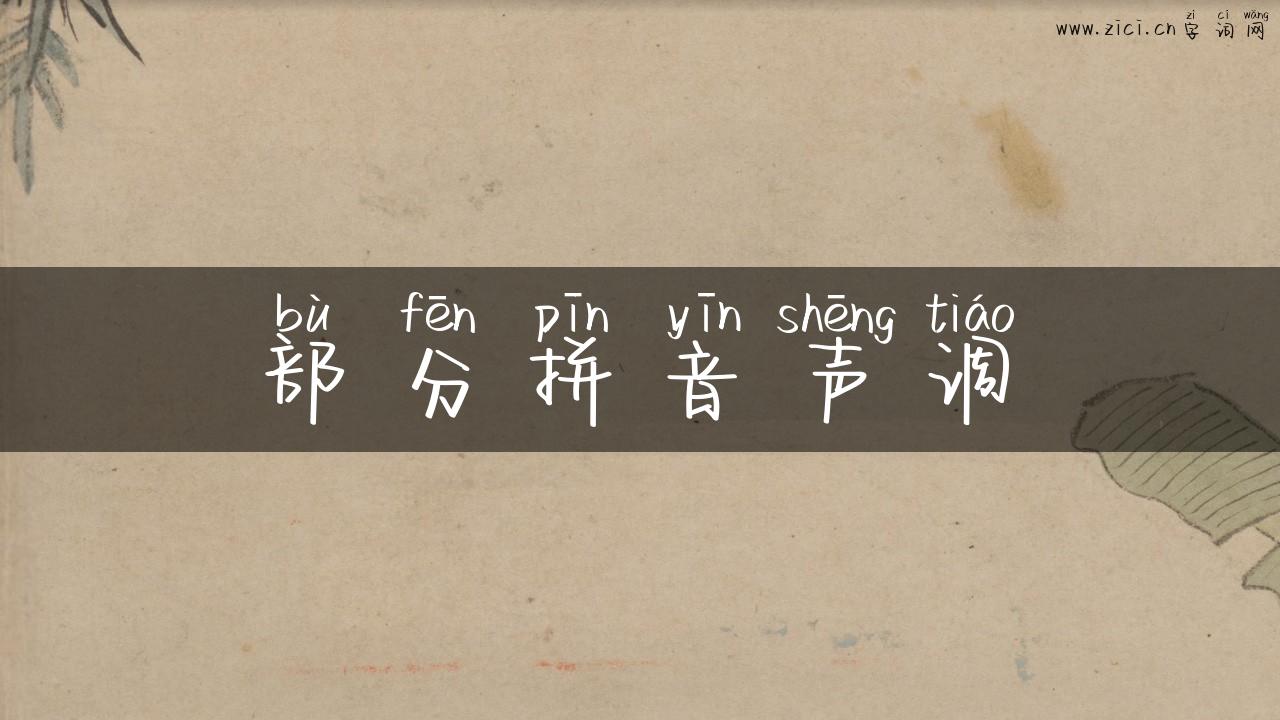 zì cí wǎng
www.zici.cn 字词网
bù fēn pīn yīn shēng tiáo
部分拼音声调